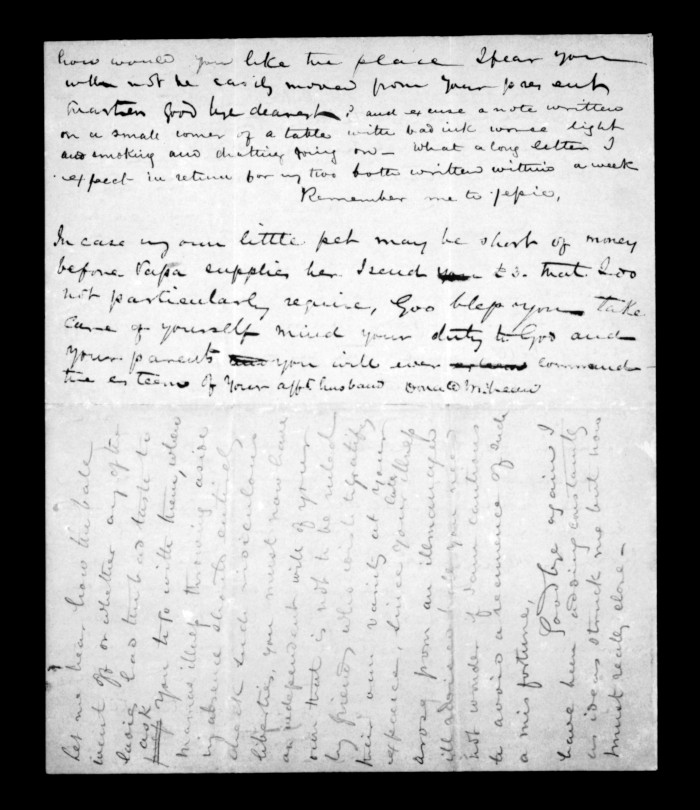 how would you like the place I fear you
will not be easily moved from your present
quarters Good bye dearest, and excuse a note written
on a small corner of a table with bad ink worse light
and smoking and chatting going on – What a long letter I
expect in return for my two both written within a week
Remember me to
In case my own little pet may be short of money
before Papa supplies her I send you £3. that I do
not particularly require, God bless you take
care of yourself mind your duty to God and
your parents and you will ever command
the esteem of your affte husband Donald McLean
Let me hear how the ball
went off or whether any of the
ladies had the bad taste to
ask you to go with them, when
Mamas illness throwing aside
my absence should entirely
check such ridiculous
liberties, you must now have
an independent will of your
own that is not to be ruled
by friends who wish to gratify
their own vanity at your
expence, since your late illness
arose from an illmanaged
ill advised you need
not wonder if I am cautious
to avoid a recurrence of such
a misfortune,
Good bye again I
have been adding constantly
as ideas struck me but now
must really close –